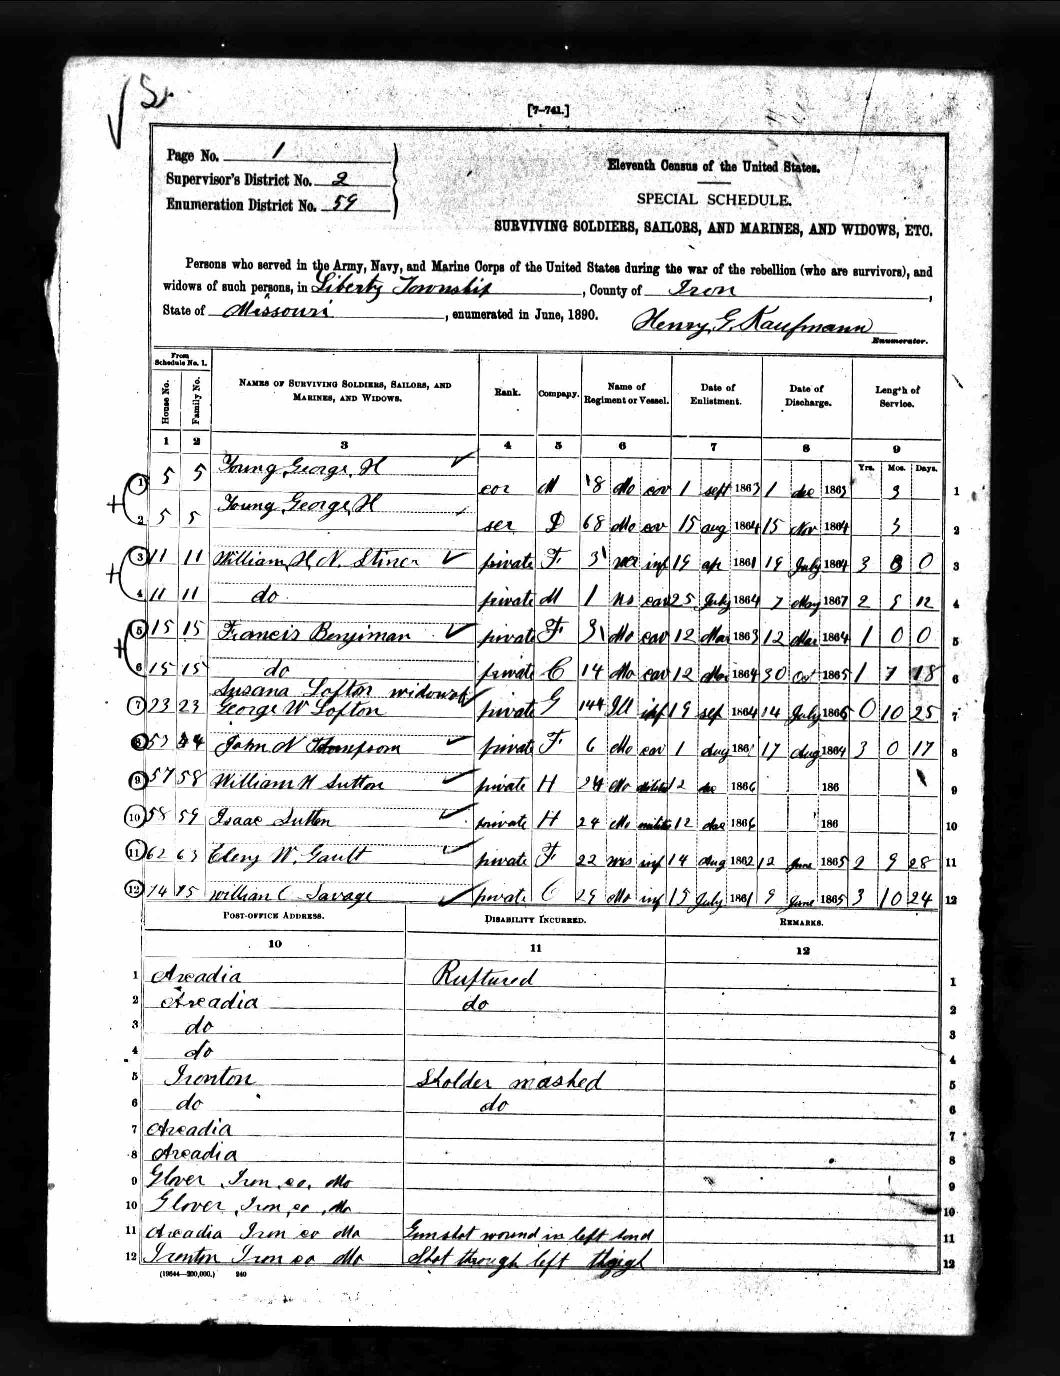 [7-741.]
Page No. 1
Supervisor's District No. 2
Enumeration District No. 59
Eleventh Census of the United States.
SPECIAL SCHEDULE.
SURVIVING SOLDIERS, SAILORS, AND MARINES, AND WIDOWS, ETC.
Persons who served in the Army, Navy, and Marine Corps of the United States during the war of the rebellion (who are survivors), and
widows of such persons, in Liberty Township, County of Iron,
State of Missouri, enumerated in June, 1890. Henry G. Kaufmann
Enumerator.
From Schedule No. 1.
House No. Family No. NAMES OF SURVIVING SOLDIERS, SAILORS, AND MARINES, AND WIDOWS. Rank. Company. Name of Regiment or Vessel. Date of Enlistment. Date of Discharge. Length of Service.
1 2 3 4 5 6 7 8 9
Yrs. Mos. Days.
1 5 5 Young George H cor M 8 Mo cav 1 sept 1863 1 dec 1863 3 1
2 5 5 Young George H ser D 68 Mo cav 15 aug 1864 15 Nov 1864 3 2
3 11 11 William H N. Stiner private F. 3 inf 19 ap 1861 19 July 1864 3 3 0 3
4 11 11 do private M 1 cav 25 July 1864 7 May 1867 2 9 12 4
5 15 15 Francis Benjiman private F. 3 Mo cav 12 Mar 1863 12 Mar 1864 1 0 0 5
6 15 15 do private C 14 Mo cav 12 Mar 1864 30 Oct 1865 1 7 18 6
Susana Lofton widow of
7 23 23 George W Lofton private G 144 Ill inf 19 sep 1864 14 July 1865 0 10 25 7
8 53 54 John N Thompson private F. 6 Mo cav 1 Aug 186 17 Aug 1864 3 0 17 8
9 57 58 William H Sutton private H 24 Mo militia 12 dec 1866 186 9
10 58 59 Isaac Sutton private H 24 Mo militia 12 dec 1866 186 10
11 62 63 Eleny W. Gault private F 22 wis inf 14 Aug 1862 12 June 1865 2 9 28 11
12 74 75 William C Savage private C 29 Mo inf 15 July 1861 9 June 1865 3 10 24 12
POST-OFFICE ADDRESS. DISABILITY INCURRED. REMARKS.
10 11 12
1 Arcadia Ruftured 1
2 Arcadia do 2
3 do 3
4 do 4
5 Ironton Sholder mashed 5
6 do do 6
7 Arcadia 7
8 Arcadia 8
9 Glover Iron co. Mo 9
10 Glover Iron co Mo 10
11 Arcadia Iron co Mo Gunshot wound in left hand 11
12 Ironton Iron co Mo Shot through left thigh 12
(19644—200,000.) 240